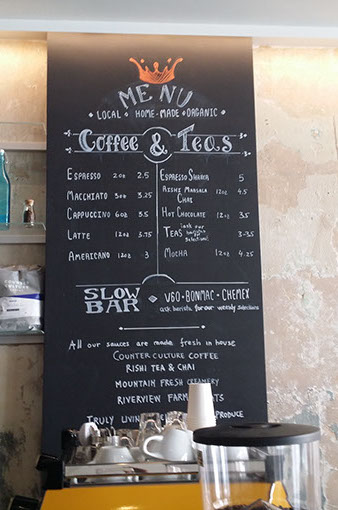 MENU
LOCAL HOME-MADE ORGANIC
Coffee & Teas
ESPRESSO 2oz 2.5
MACCHIATO 3oz 3.25
CAPPUCCINO 6oz 3.5
LATTE 12oz 3.75
AMERICANO 12oz 3
ESPRESSO SHAKERA 5
RISHI MASALA CHAI 12oz 4.5
HOT CHOCOLATE 12oz 3.5
TEAS ask our barista for selection! 3-3.5
MOCHA 12oz 4.25
SLOW BAR V60-BONMAC-CHEMEX
ask barista for our weekly selections
All our sauces are made fresh in house
COUNTER CULTURE COFFEE
RISHI TEA & CHAI
MOUNTAIN FRESH CREAMERY
RIVERVIEW FARM
TRULY LIVING PRODUCE